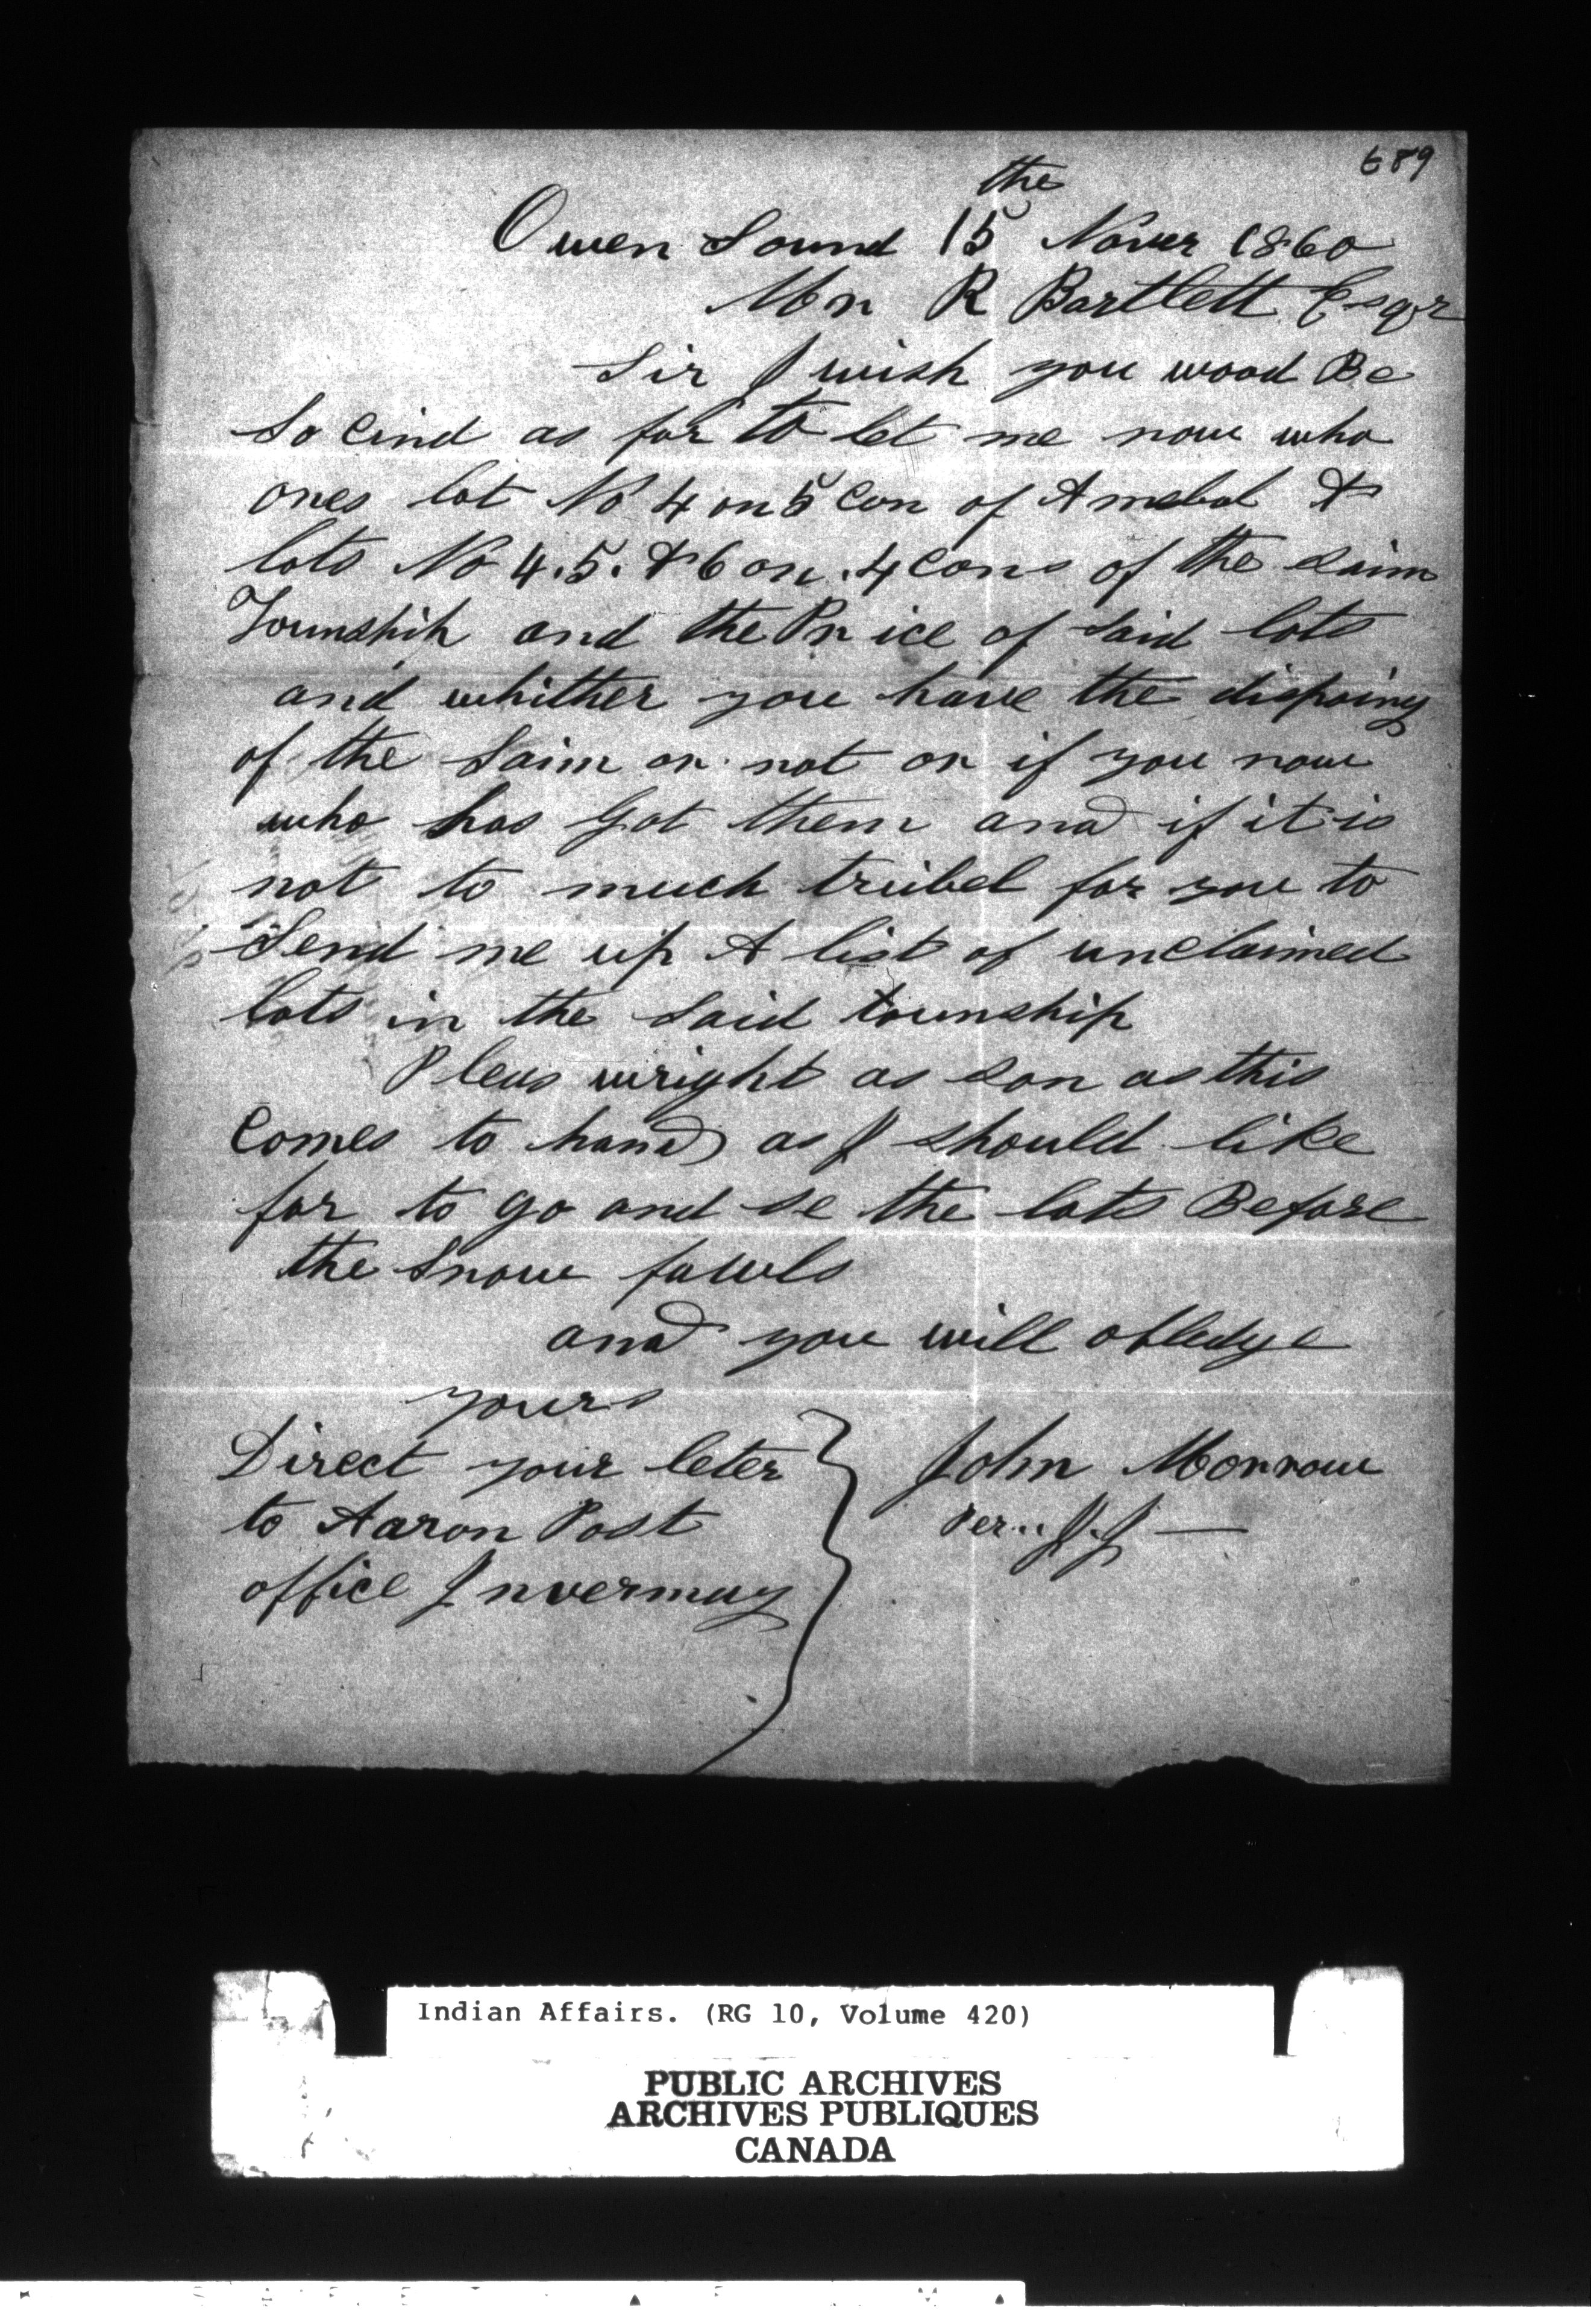 689
the
Owen Sound 15 Nover 1860
Mr R Bartlett Esqr
Sir I wish you wood Be
So Cind as for to let me now who
ones lot No 4 on 5 Con of Amebel &
lots No 4.5. & 6 on .4 Cons of the saim
Township and the Price of Said lots
and whither you have the dispoing
of the Saim or not or if you now
who has Got them and if it is
not to much tribel for you to
Send me up A list of unclaimed
lots in the Said township
Pleas wright as son as this
Comes to hand as I should like
for to go and se the lots Before
the Snow fawls
and you will obledge
yours
Direct your leter
to Aaron Post
office Invermay
John Morrow
Per. J. J
Indian Affairs. (RG 10, Volume 420)
PUBLIC ARCHIVES
ARCHIVES PUBLIQUES
CANADA